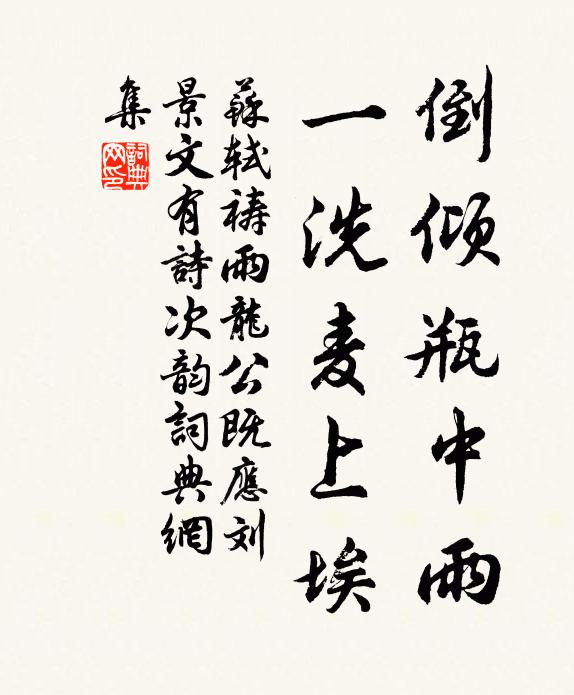 倒倾瓶中雨
一洗麦上埃
蘇軾祷雨龍公既應刘
景文有詩次韵詞典網
集
詞典網印